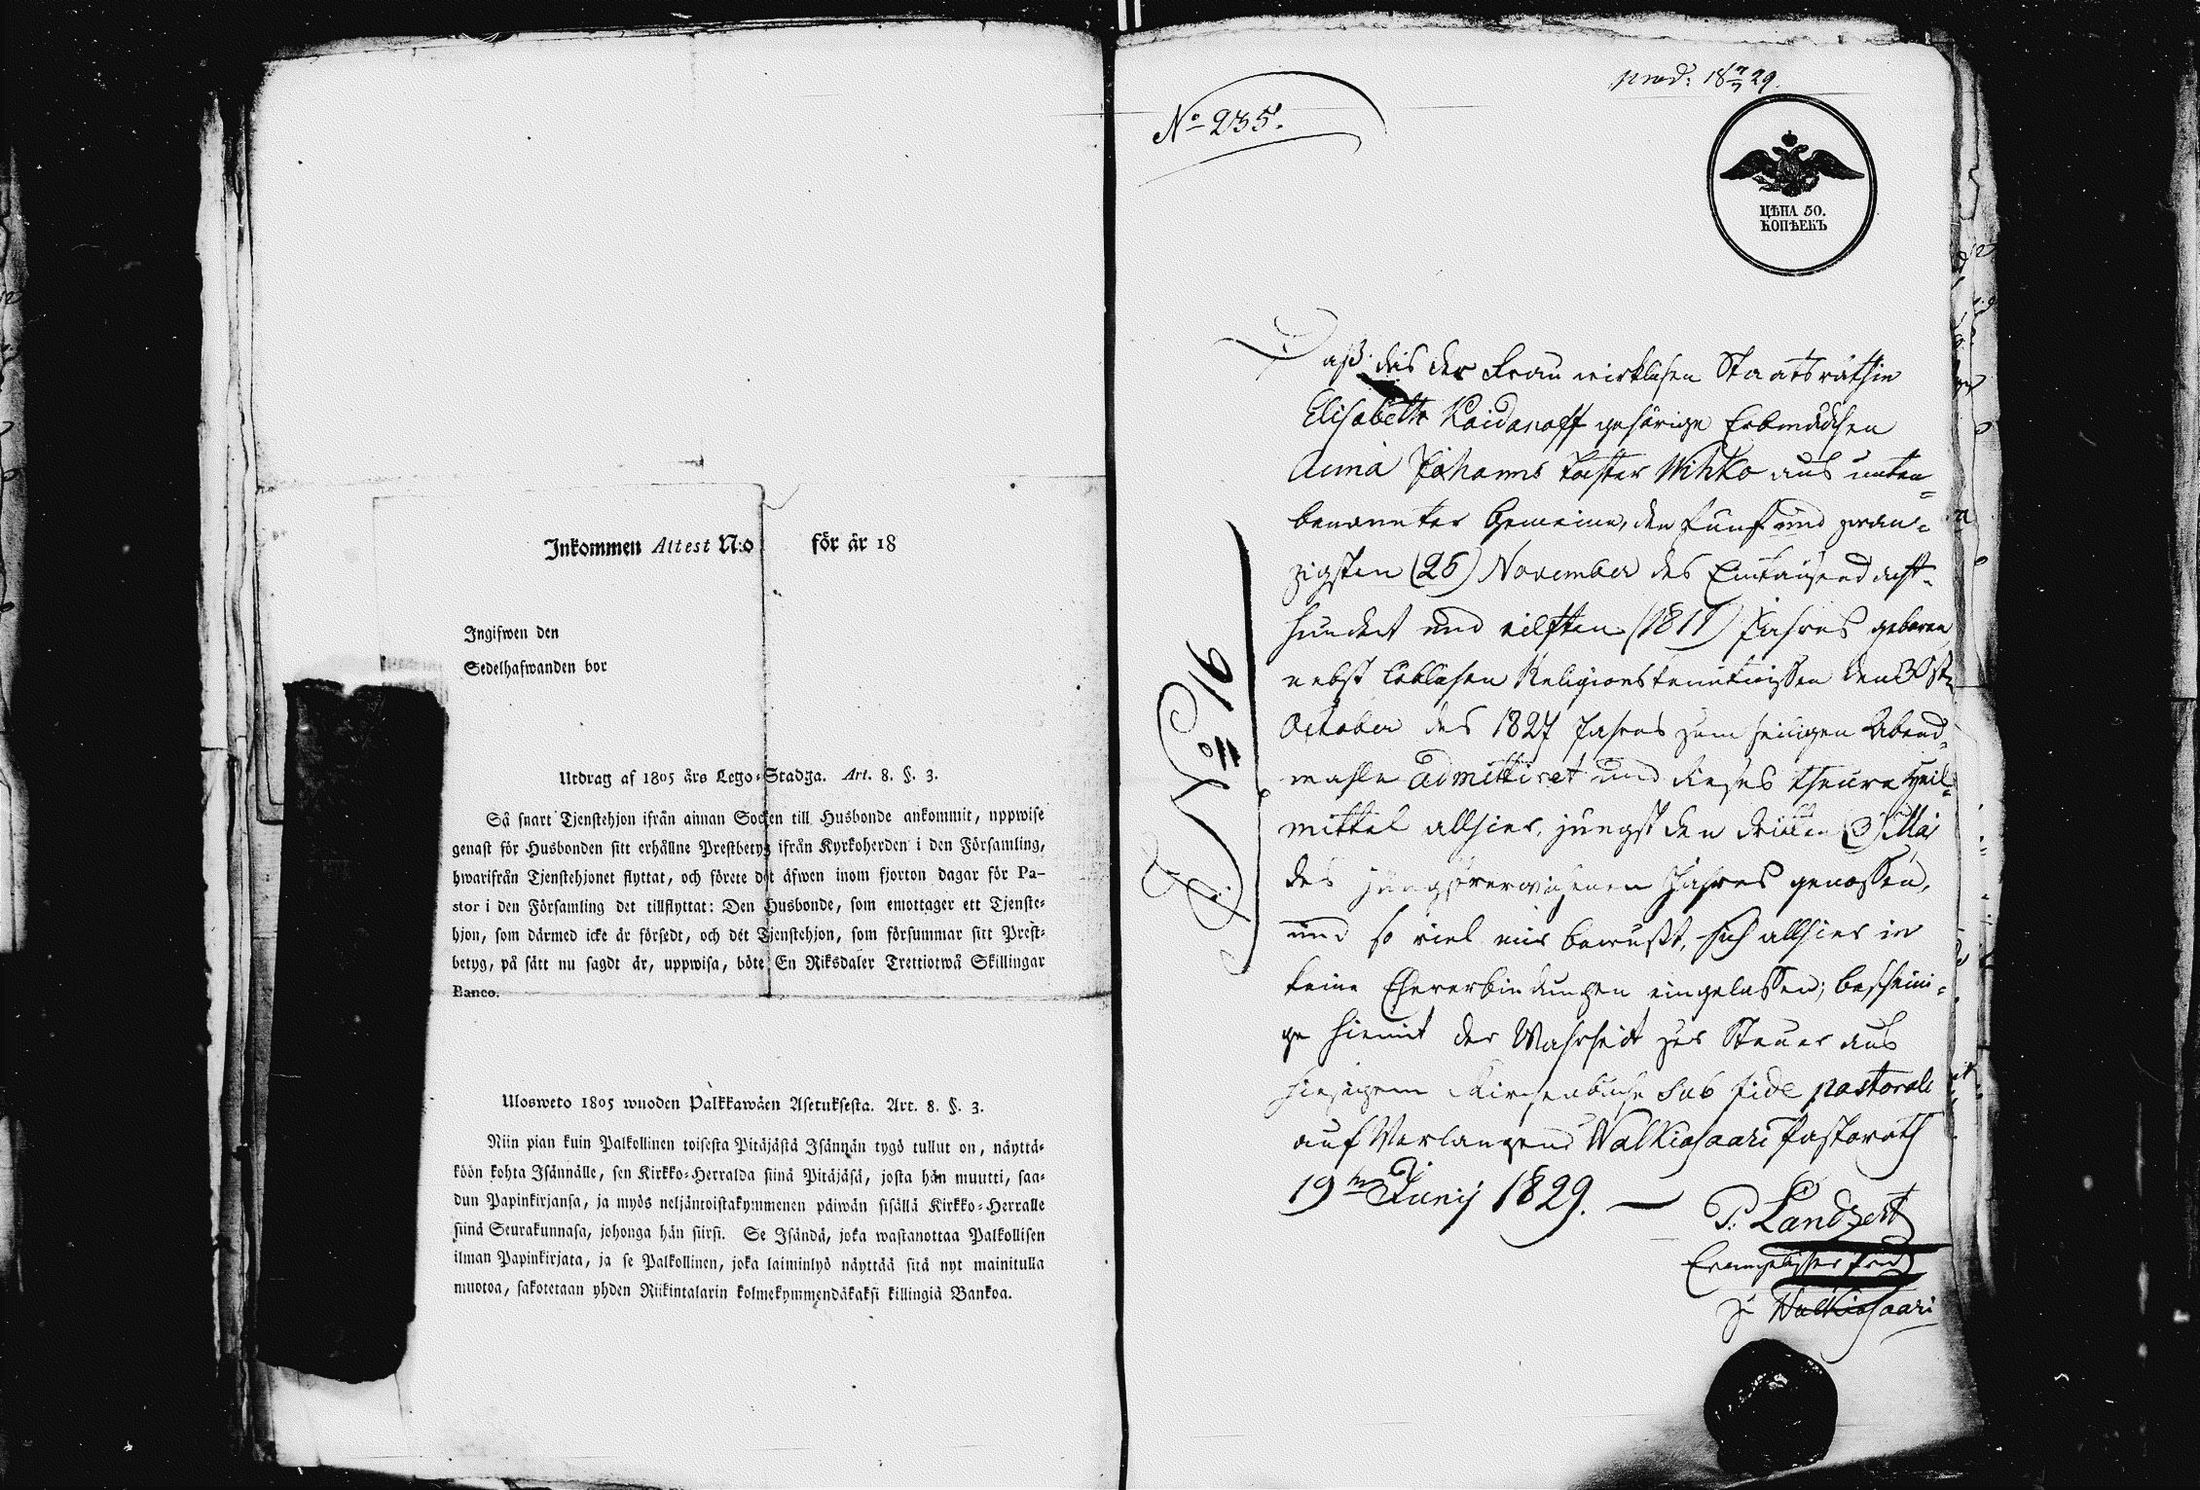 Inkommen Attest N:o för år 18
Ingifwen den
Sedelhafwanden bor
Utdrag af 1805 års Lego-Stadga. Art. 8. §. 3.
Så snart Tjenstehjon ifrån annan Socken till Husbonde ankommit, uppwise
genast för Husbonden sitt erhållne Prestbetyg ifrån Kyrkoherden i den Församling,
hwarifrån Tjenstehjonet flyttat, och förete det äfwen inom fjorton dagar för Pa-
stor i den Församling det tillflyttat: Den Husbonde, som emottager ett Tjenste-
hjon, som därmed icke är försedt, och det Tjenstehjon, som försummar sitt Prest-
betyg, på sätt nu sagdt är, uppwisa, böte En Riksdaler Trettiotwå Skillingar
Banco.
Ulosweto 1805 wuoden Palkkawäen Asetuksesta. Art. 8. §. 3.
Niin pian kuin Palkollinen toisesta Pitäjästä Isännän tygö tullut on, näyttä-
köön kohta Isännälle, sen Kirkko-Herralda siinä Pitäjäsä, josta hän muutti, saa-
dun Papinkirjansa, ja myös neljäntoistakymmenen päiwän sisällä Kirkko-Herralle
siinä Seurakunnasa, johonga hän siirsi. Se Isändä, joka wastanottaa Palkollisen
ilman Papinkirjata, ja se Palkollinen, joka laiminlyö näyttää sitä nyt mainitulla
muotoa, sakotetaan yhden Riikintalarin kolmekymmendäkaksi killingiä Bankoa.
No 235.
prod: 18 29.
ЦѢНА 50.
КОПѢЕКЪ
No 91
Daß das der Frau wirklichen Staatsräthin
Elisabeth Kaidanoff gehörige Erbmädchen
Anna Johanns Tochter Wihko aus unten-
benannter Gemeine, den fünf und zwan-
zigsten (25) November des Eintausend acht-
hundert und eilften (1811) Jahres geboren
nebst löblichen Religionskenntnissen den 30ste
October des 1827 Jahres zum heiligen Abend-
mahle admittiret und dieses theure Heil-
mittel allhier, jüngst den dritten (3) Mai
des jüngstverwichenen Jahres genossen,
und so viel mir bewußt, sich allhier in
keine Eheverbindungen eingelassen; beschein-
ge hiemit der Wahrheit zur Steuer aus
hiesigem Kirchenbuche sub fide pastorali
auf Verlangend Walkiasaari Pastorath
19ten Junij 1829. —
P. Landzert
Evangelischer Pred
zu Walkiasaari